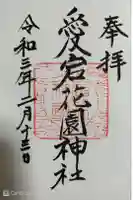 奉拝
愛宕花園神社
令和三年二月十三日